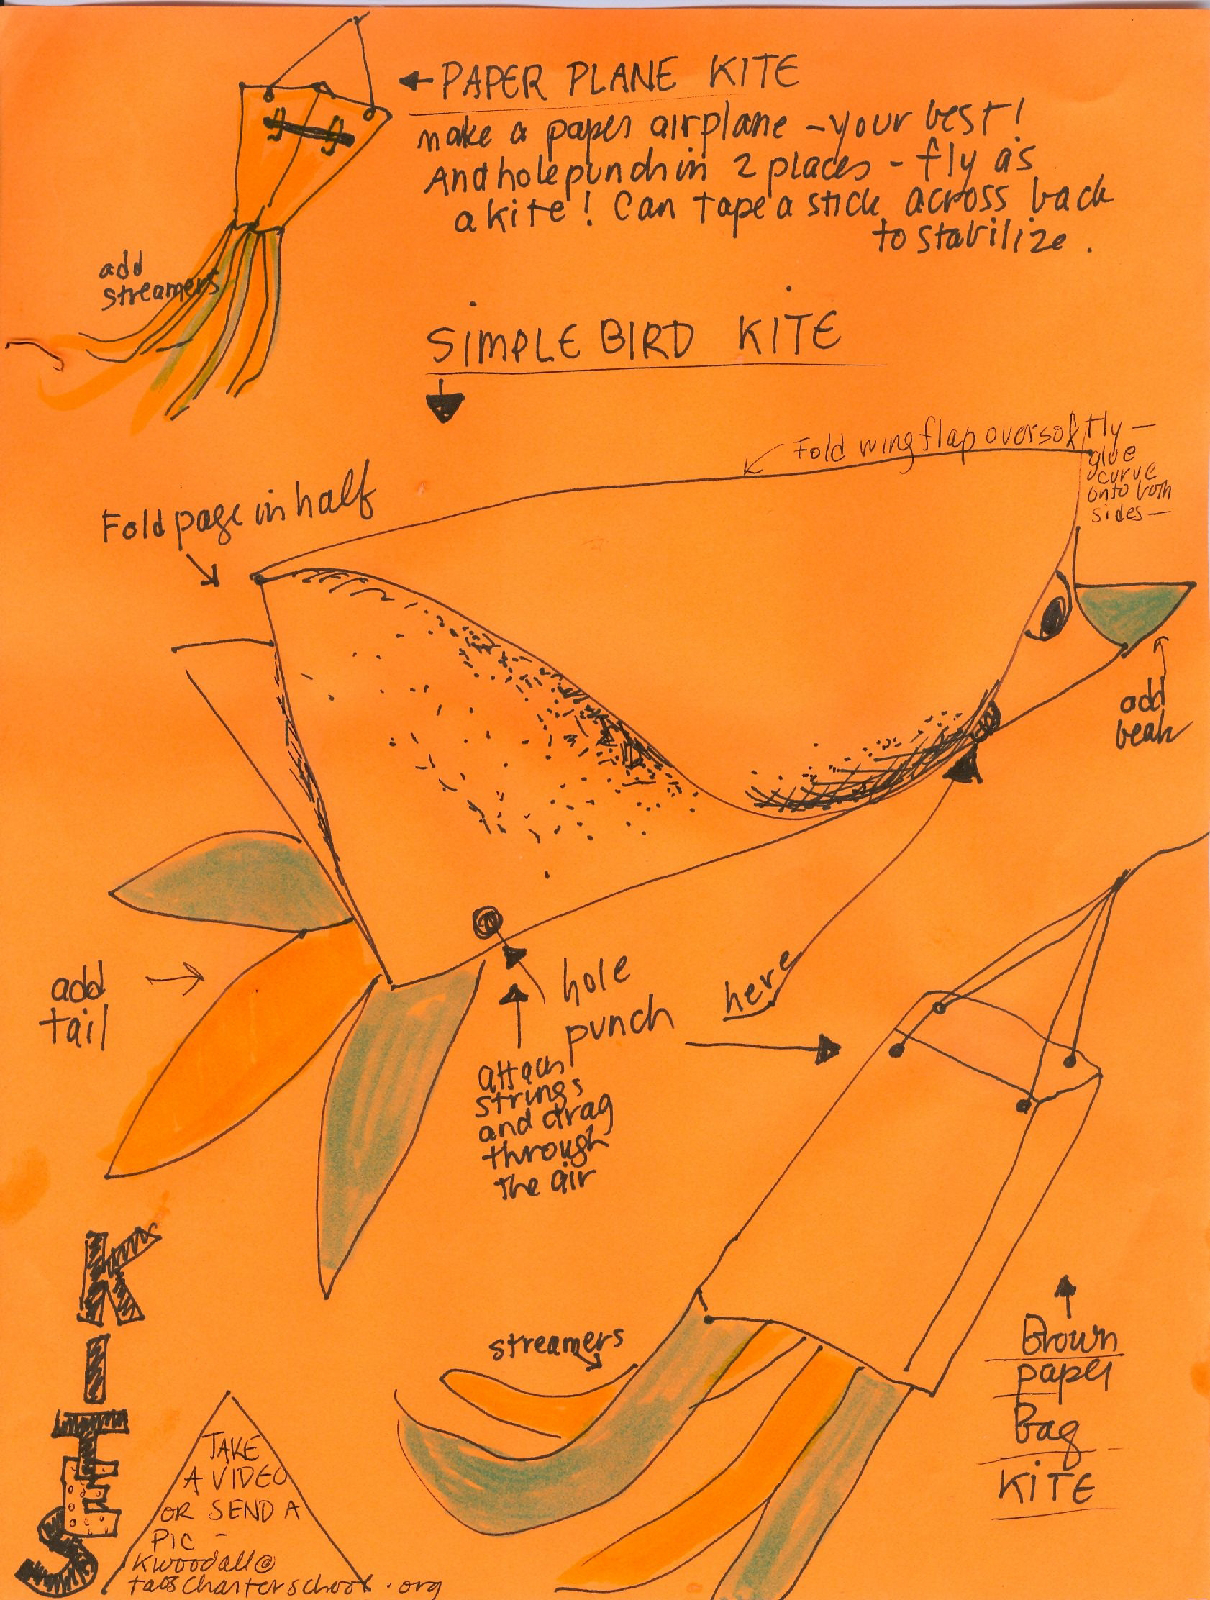 PAPER PLANE KITE
make a paper airplane - your best!
And hole punch in 2 places - fly as
a kite! Can tape a stick across back
to stabilize.
add
streamers
SIMPLE BIRD KITE
Fold wing flap over softly -
glue
curve
onto both
sides -
Fold page in half
add
beak
add
tail
hole
punch
here
attach
strings
and drag
through
the air
KITES
streamers
Brown
paper
Bag
KITE
TAKE
A VIDEO
OR SEND A
PIC -
kwoodall@
taoscharterschool.org